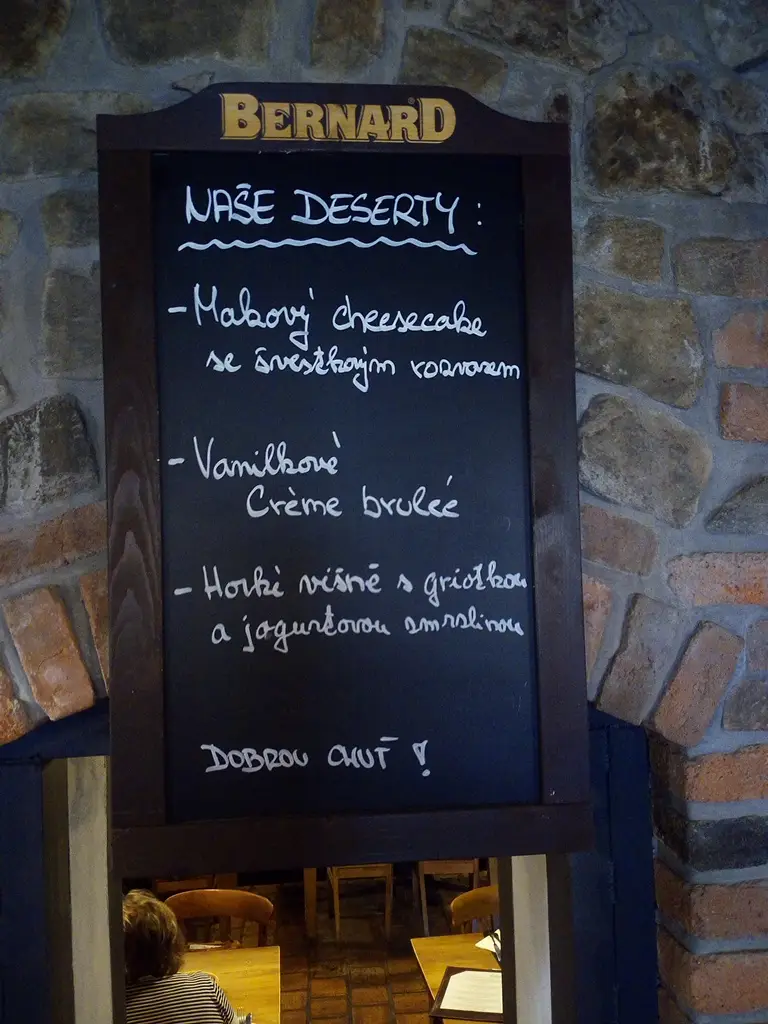 BERNARD
NAŠE DESERTY :
- Makový cheesecake
se švestkovým rozvarem
- Vanilkové
Crème brulée
- Horké višně s griotkou
a jogurtovou zmrzlinou
DOBROU CHUŤ !